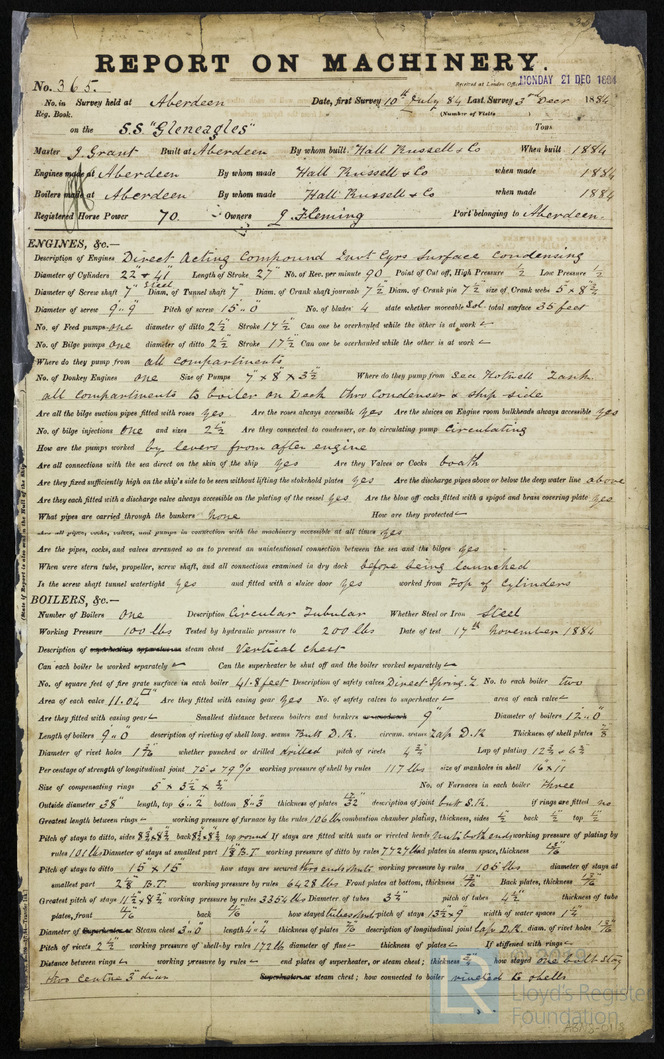 REPORT ON MACHINERY.
No. 365. Received at London Office MONDAY 21 DEC 1884
No. in Survey held at Aberdeen Date, first Survey 10th July 84 Last Survey 3rd Decr 1884
Reg. Book. (Number of Visits )
on the S.S "Gleneagles" Tons
Master J. Grant Built at Aberdeen By whom built Hall Russell & Co When built 1884
Engines made at Aberdeen By whom made Hall Russell & Co when made 1884
Boilers made at Aberdeen By whom made Hall Russell & Co when made 1884
Registered Horse Power 70. Owners J Fleming Port belonging to Aberdeen.
ENGINES, &c.—
Description of Engines Direct Acting Compound Invt Cyrs Surface Condensing
Diameter of Cylinders 22" & 41" Length of Stroke 27" No. of Rev. per minute 90 Point of Cut off, High Pressure 1/2 Low Pressure 1/2
Diameter of Screw shaft 7" Steel Diam. of Tunnel shaft 7" Diam. of Crank shaft journals 7 1/2 Diam. of Crank pin 7 1/2 size of Crank webs 5 × 8 3/4
Diameter of screw 9'·9" Pitch of screw 15'·0" No. of blades 4 state whether moveable Sol. total surface 35 feet
No. of Feed pumps one diameter of ditto 2 1/2 Stroke 17 1/2 Can one be overhauled while the other is at work
No. of Bilge pumps one diameter of ditto 2 1/2 Stroke 17 1/2 Can one be overhauled while the other is at work
Where do they pump from all compartments
No. of Donkey Engines One Size of Pumps 7" × 8" × 3 1/2 Where do they pump from Sea Hotwell Tank
all compartments to boiler on Deck thro Condenser & ship side
Are all the bilge suction pipes fitted with roses yes Are the roses always accessible yes Are the sluices on Engine room bulkheads always accessible yes
No. of bilge injections One and sizes 2 1/2 Are they connected to condenser, or to circulating pump Circulating
How are the pumps worked by levers from after engine
Are all connections with the sea direct on the skin of the ship yes Are they Valves or Cocks boath
Are they fixed sufficiently high on the ship's side to be seen without lifting the stokehold plates yes Are the discharge pipes above or below the deep water line above
Are they each fitted with a discharge valve always accessible on the plating of the vessel yes Are the blow off cocks fitted with a spigot and brass covering plate yes
What pipes are carried through the bunkers None How are they protected
Are all pipes, cocks, valves, and pumps in connection with the machinery accessible at all times yes
Are the pipes, cocks, and valves arranged so as to prevent an unintentional connection between the sea and the bilges yes
When were stern tube, propeller, screw shaft, and all connections examined in dry dock before being launched
Is the screw shaft tunnel watertight yes and fitted with a sluice door yes worked from Top of Cylinders
BOILERS, &c.—
Number of Boilers One Description Circular Tubular Whether Steel or Iron Steel
Working Pressure 100 lbs Tested by hydraulic pressure to 200 lbs Date of test 17th November 1884
Description of superheating apparatus or steam chest Vertical chest
Can each boiler be worked separately Can the superheater be shut off and the boiler worked separately
No. of square feet of fire grate surface in each boiler 41.8 feet Description of safety valves Direct Spring. No. to each boiler two
Area of each valve 11.04 □" Are they fitted with easing gear yes No. of safety valves to superheater area of each valve
Are they fitted with easing gear Smallest distance between boilers and bunkers or woodwork 9" Diameter of boilers 12'·0"
Length of boilers 9'·0" description of riveting of shell long. seams Butt D.R. circum. seams Lap D.R. Thickness of shell plates
Diameter of rivet holes whether punched or drilled drilled pitch of rivets 4 3/4 Lap of plating
Per centage of strength of longitudinal joint 75 & 79% working pressure of shell by rules 117 lb size of manholes in shell 16 × 11
Size of compensating rings No. of Furnaces in each boiler three
Outside diameter 38" length, top 6'·2" bottom 8'·3 thickness of plates description of joint butt S.R. if rings are fitted no
Greatest length between rings working pressure of furnace by the rules 106 lb combustion chamber plating, thickness, sides back 1/2 top 1/2
Pitch of stays to ditto, sides back top round If stays are fitted with nuts or riveted heads Nuts both ends working pressure of plating by
rules 101 lbs Diameter of stays at smallest part working pressure of ditto by rules plates in steam space, thickness
Pitch of stays to ditto 15" × 15" how stays are secured two ends nuts working pressure by rules 105 lbs diameter of stays at
smallest part 2 1/8 B.T. working pressure by rules 6428 lbs Front plates at bottom, thickness Back plates, thickness
Greatest pitch of stays working pressure by rules 3354 lbs Diameter of tubes 3 1/2 pitch of tubes 4 1/2 thickness of tube
plates, front back how stayed tubes & nuts pitch of stays 13 1/2 × 9 width of water spaces
Diameter of Superheater or Steam chest 3'·0 length 4'·4 thickness of plates description of longitudinal joint lap D.R. diam. of rivet holes
Pitch of rivets 2 1/2 working pressure of shell by rules 172 lb diameter of flue thickness of plates If stiffened with rings
Distance between rings working pressure by rules end plates of superheater, or steam chest; thickness how stayed one bolt stay
thro centre 3" diam Superheater or steam chest; how connected to boiler riveted to shells
Lloyd's Register
Foundation